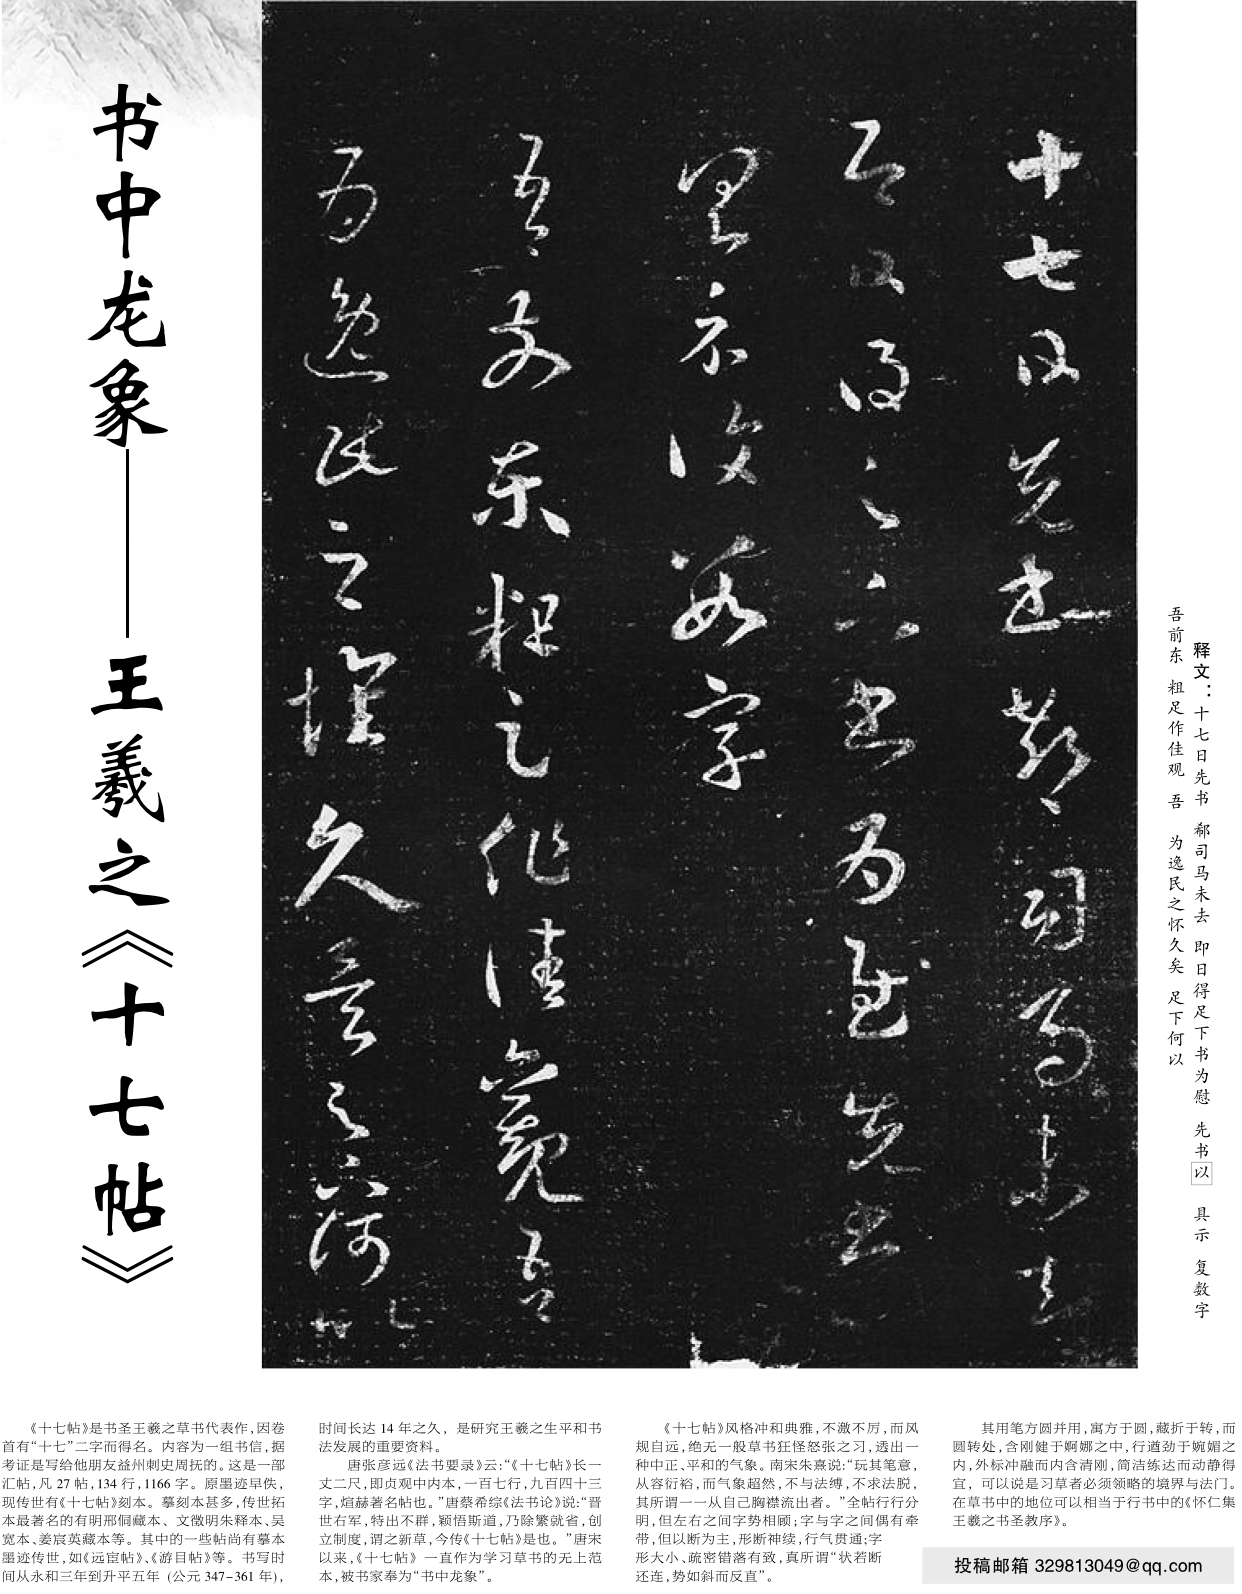 书中龙象——王羲之《十七帖》
十七日先书郗司马未去
即日得足下书为慰先书
以具示复数字
吾前东粗足作佳观吾
为逸民之怀久矣足下何以
释文：十七日先书 郗司马未去 即日得足下书为慰 先书以 具示 复数字
吾前东 粗足作佳观 吾 为逸民之怀久矣 足下何以
《十七帖》是书圣王羲之草书代表作，因卷
首有“十七”二字而得名。内容为一组书信，据
考证是写给他朋友益州刺史周抚的。这是一部
汇帖，凡 27 帖，134 行，1166 字。原墨迹早佚，
现传世有《十七帖》刻本。摹刻本甚多，传世拓
本最著名的有明邢侗藏本、文徵明朱释本、吴
宽本、姜宸英藏本等。其中的一些帖尚有摹本
墨迹传世，如《远宦帖》、《游目帖》等。书写时
间从永和三年到升平五年 (公元 347-361 年)，
时间长达 14 年之久，是研究王羲之生平和书
法发展的重要资料。
唐张彦远《法书要录》云：“《十七帖》长一
丈二尺，即贞观中内本，一百七行，九百四十三
字，煊赫著名帖也。”唐蔡希综《法书论》说：“晋
世右军，特出不群，颖悟斯道，乃除繁就省，创
立制度，谓之新草，今传《十七帖》是也。”唐宋
以来，《十七帖》一直作为学习草书的无上范
本，被书家奉为“书中龙象”。
《十七帖》风格冲和典雅，不激不厉，而风
规自远，绝无一般草书狂怪怒张之习，透出一
种中正、平和的气象。南宋朱熹说：“玩其笔意，
从容衍裕，而气象超然，不与法缚，不求法脱，
其所谓一一从自己胸襟流出者。”全帖行行分
明，但左右之间字势相顾；字与字之间偶有牵
带，但以断为主，形断神续，行气贯通；字
形大小、疏密错落有致，真所谓“状若断
还连，势如斜而反直”。
其用笔方圆并用，寓方于圆，藏折于转，而
圆转处，含刚健于婀娜之中，行遒劲于婉媚之
内，外标冲融而内含清刚，简洁练达而动静得
宜，可以说是习草者必须领略的境界与法门。
在草书中的地位可以相当于行书中的《怀仁集
王羲之书圣教序》。
投稿邮箱 329813049@qq.com